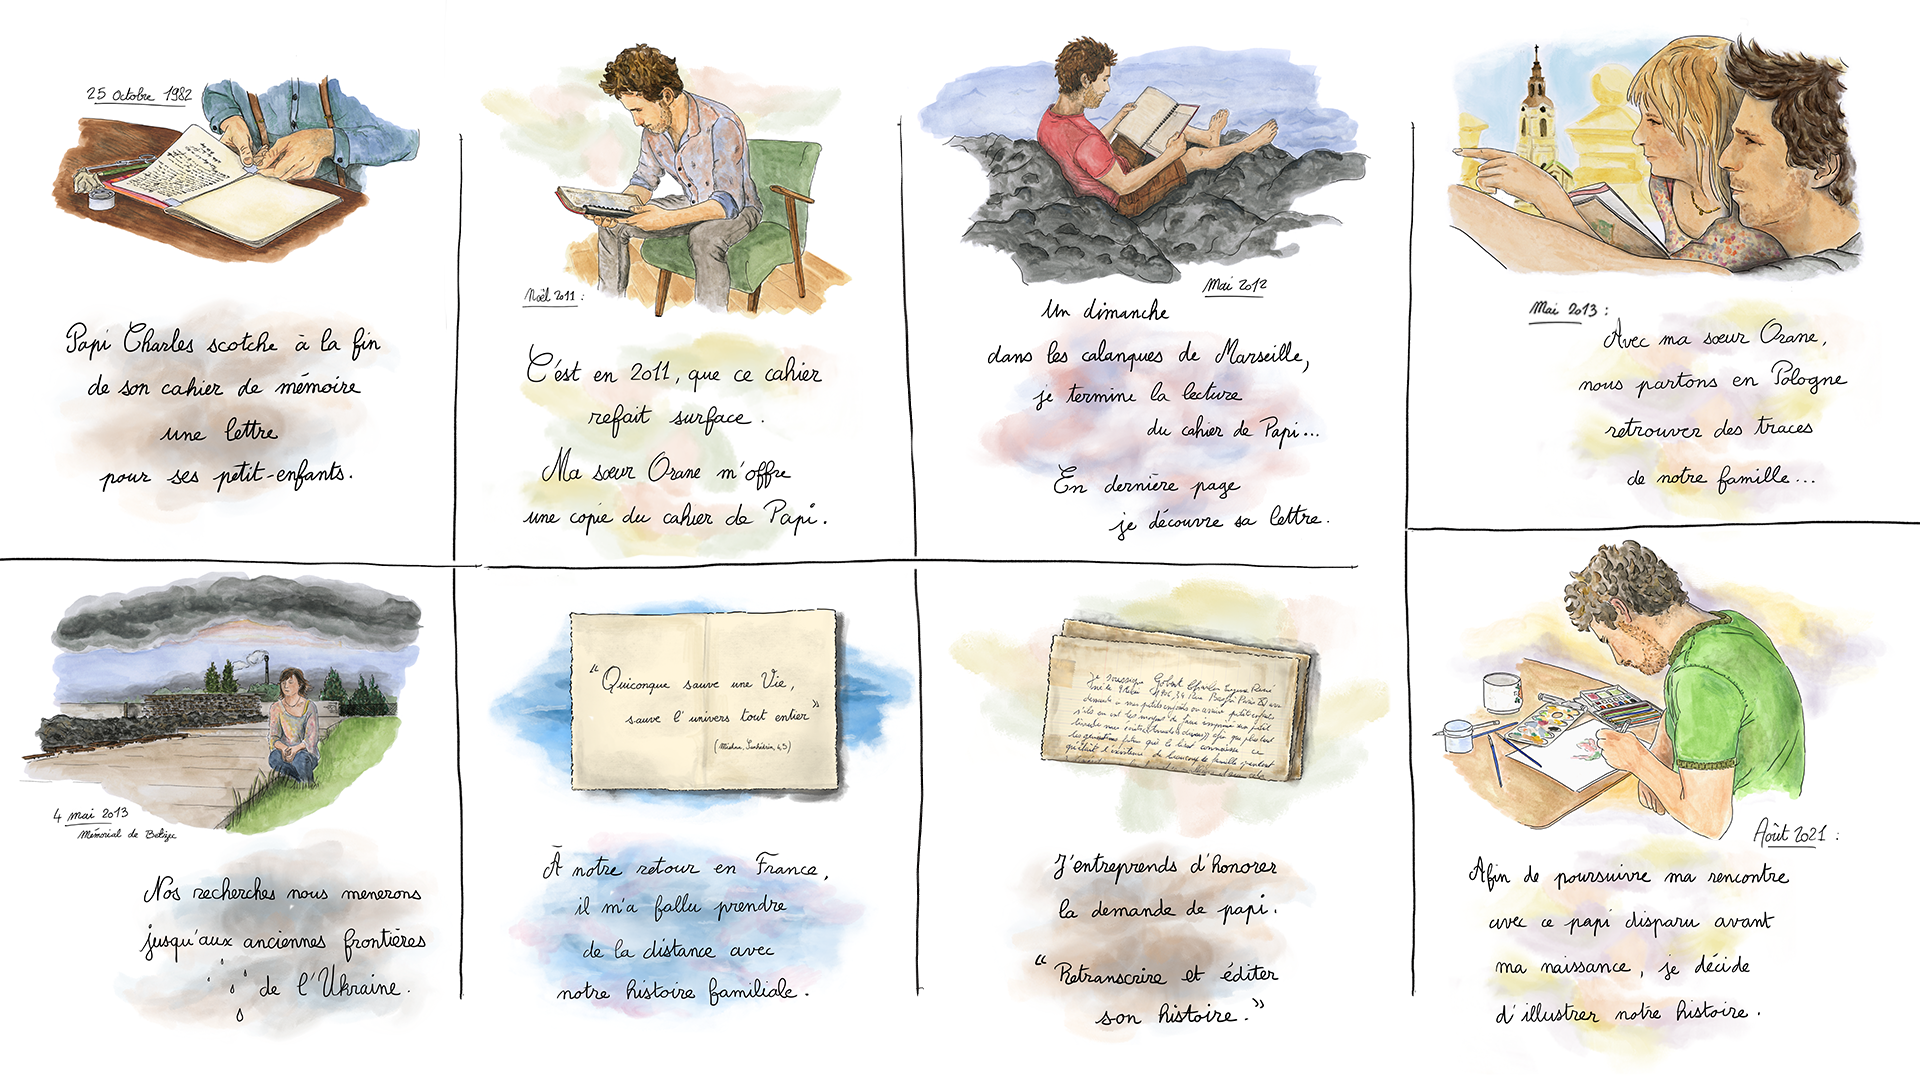 25 Octobre 1982
Papi Charles scotche à la fin
de son cahier de mémoire
une lettre
pour ses petit-enfants.
Noël 2011 :
C'est en 2011, que ce cahier
refait surface.
Ma sœur Orane m'offre
une copie du cahier de Papi.
Mai 2012
Un dimanche
dans les calanques de Marseille,
je termine la lecture
du cahier de Papi...
En dernière page
je découvre sa lettre.
Mai 2013 :
Avec ma sœur Orane,
nous partons en Pologne
retrouver des traces
de notre famille...
4 mai 2013
Mémorial de Belzec
Nos recherches nous menerons
jusqu'aux anciennes frontières
de l'Ukraine.
"Quiconque sauve une Vie,
sauve l'univers tout entier"
(Mishna, Sanhédrin 4,5)
À notre retour en France,
il m'a fallu prendre
de la distance avec
notre histoire familiale.
Je soussigné Gobert Charles Eugène René
demande à mes petits enfants ou arrière petits enfants
s'ils en ont les moyens de faire imprimer un petit
les générations futures
J'entreprends d'honorer
la demande de papi.
"Retranscrire et éditer
son histoire."
Août 2021 :
Afin de poursuivre ma rencontre
avec ce papi disparu avant
ma naissance, je décide
d'illustrer notre histoire.